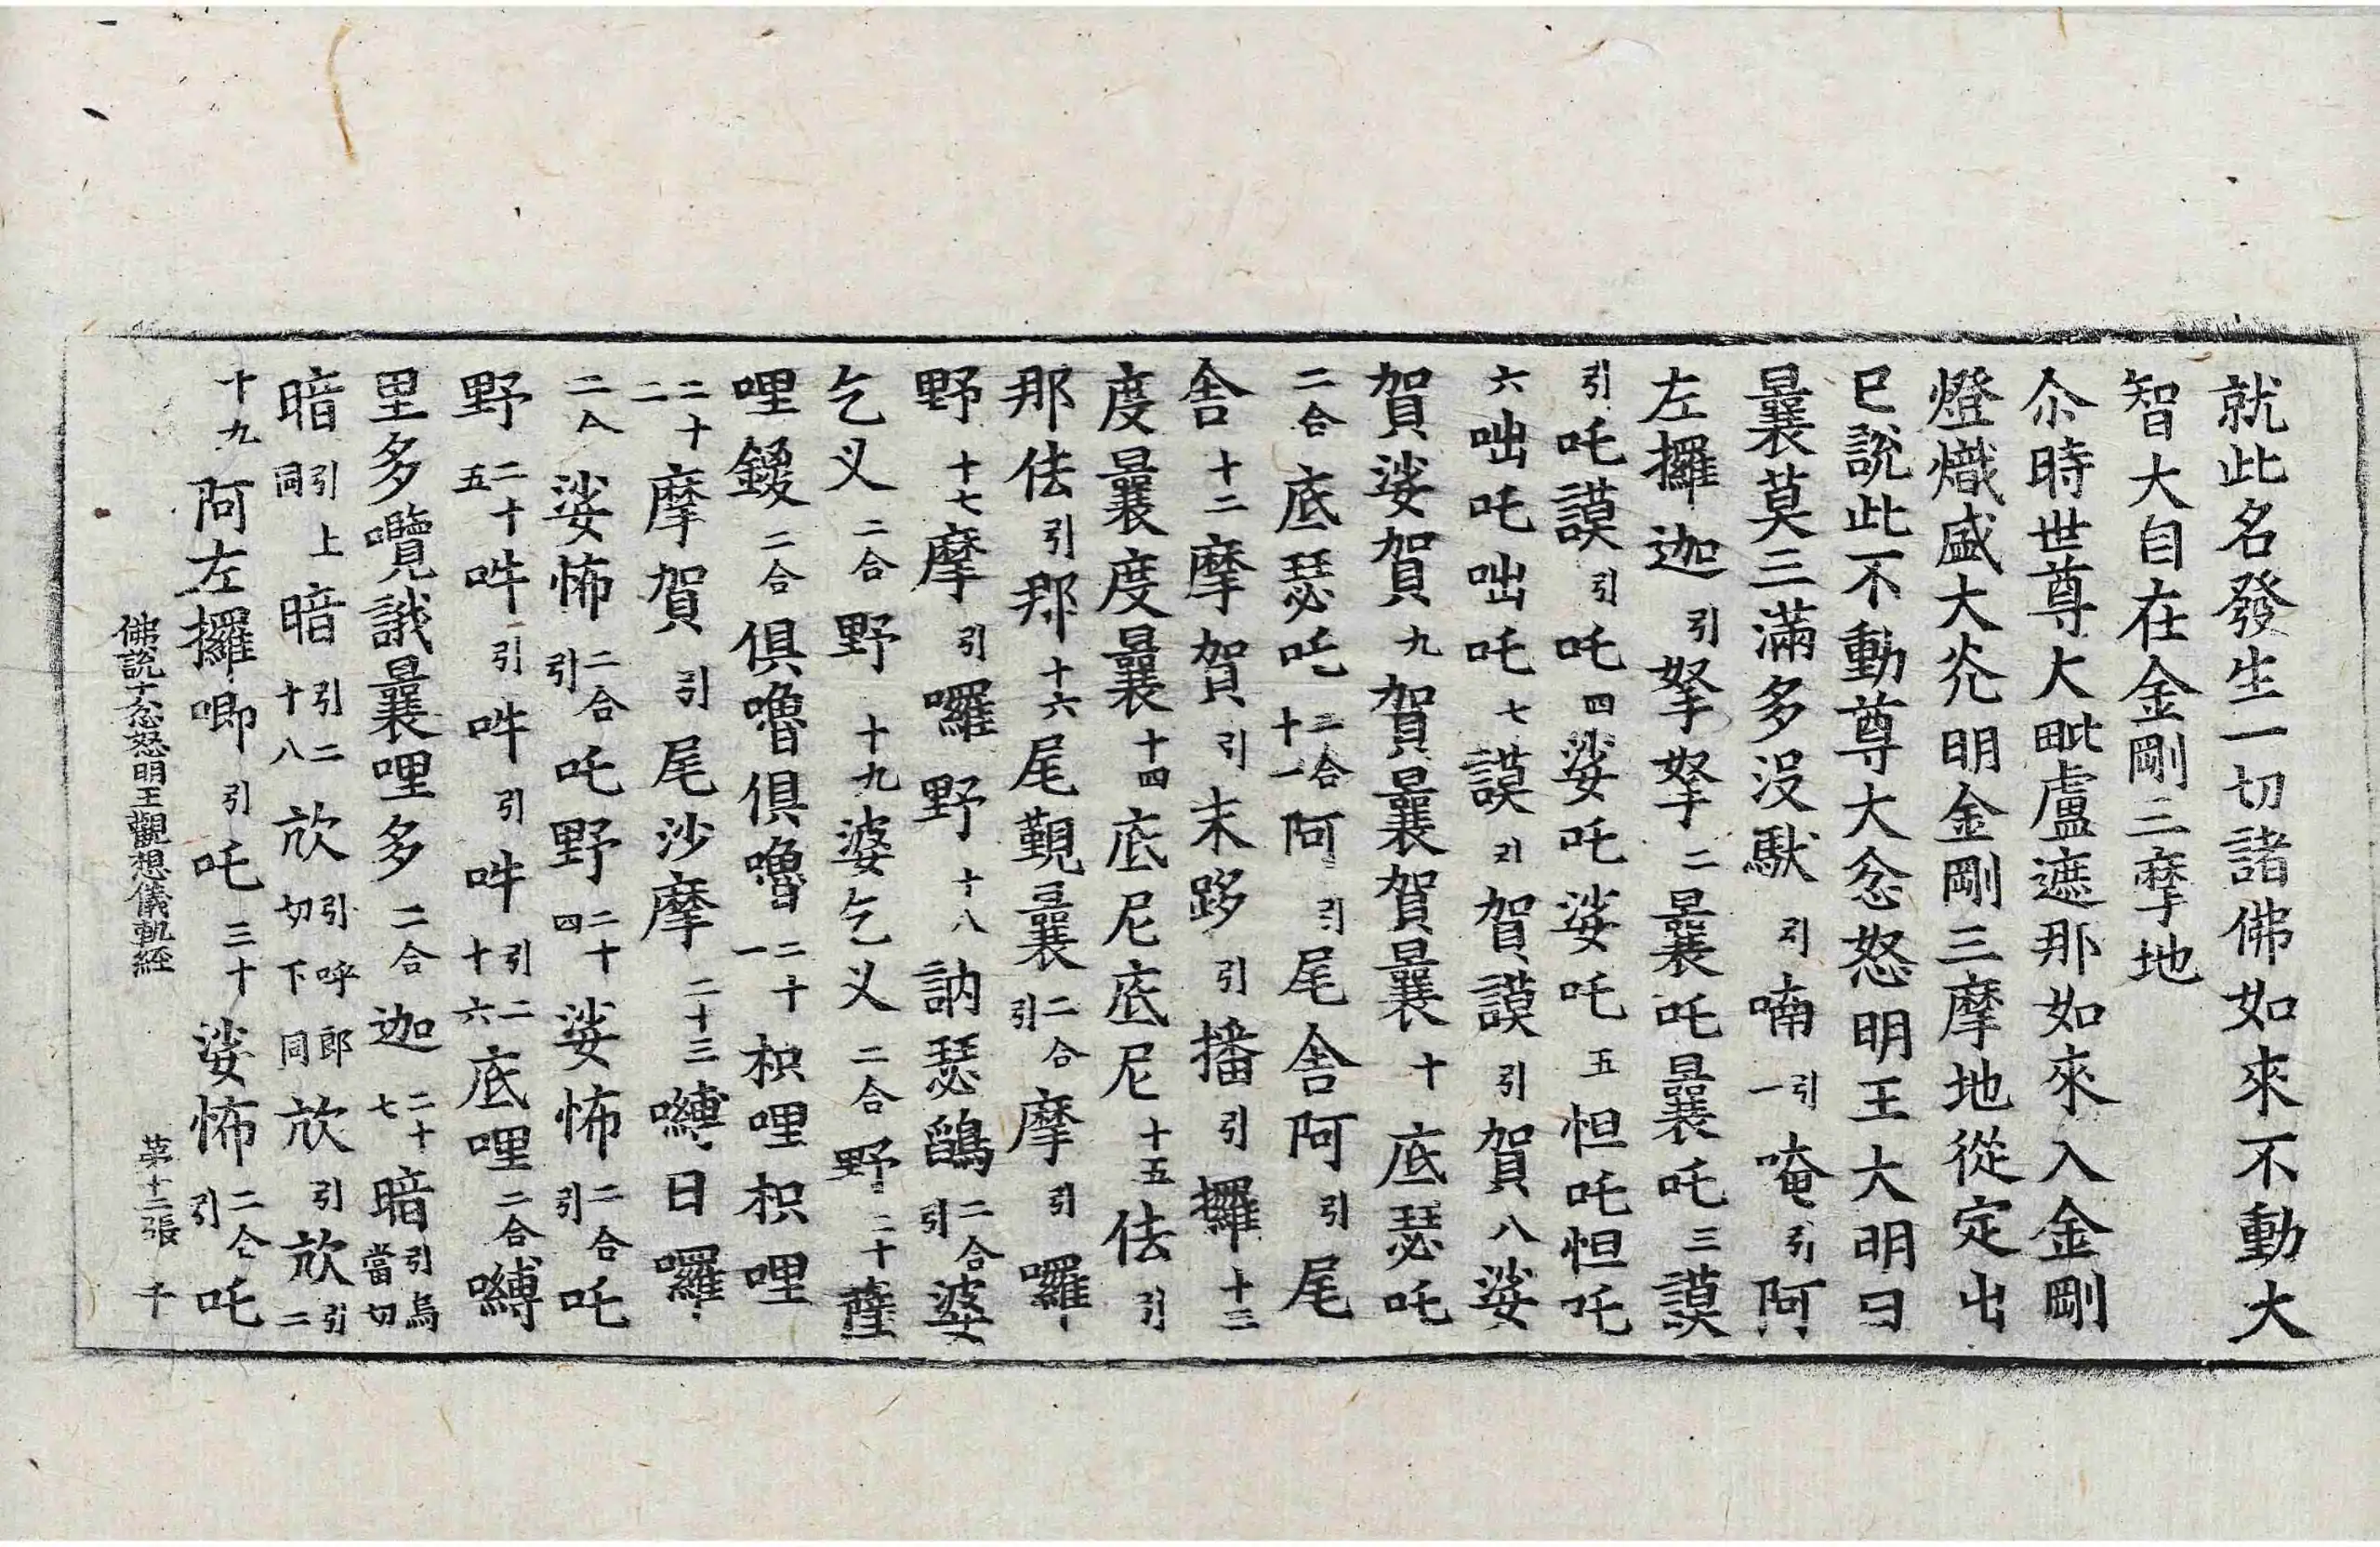 就此名發生一切諸佛如來不動大
智大自在金剛三摩地
尒時世尊大毗盧遮那如來入金剛
燈熾盛大光明金剛三摩地從定出
已說此不動尊大忿怒明王大明曰
曩莫三滿多沒馱引喃引一唵引阿
左攞迦引拏拏二曩吒曩吒三謨
引吒謨引吒四娑吒娑吒五怛吒怛吒
六咄吒咄吒七謨引賀謨引賀八娑
賀娑賀九賀曩賀曩十底瑟吒
二合底瑟吒二合十一阿引尾舍阿引尾
舍十二摩賀引末跢引播引攞十三
度曩度曩十四底尼底尼十五佉引
那佉引那十六尾覲曩二合引摩引囉
野十七摩引囉野十八訥瑟鵮二合引婆
乞叉二合野十九婆乞叉二合野二十薩
哩鑁二合俱嚕俱嚕二十一枳哩枳哩
二十二摩賀引尾沙摩二十三嚩日囉
二合娑怖二合引吒野二十四娑怖二合引吒
野二十五吽引吽引吽引二十六底哩二合嚩
里多囕誐曩哩多二合迦二十七暗引烏當切
暗引上同暗引二十八㰠引呼郎切下同㰠引㰠引二
十九阿左攞唧引吒三十娑怖二合引吒
佛說十忿怒明王觀想儀軌經 第十二張 千